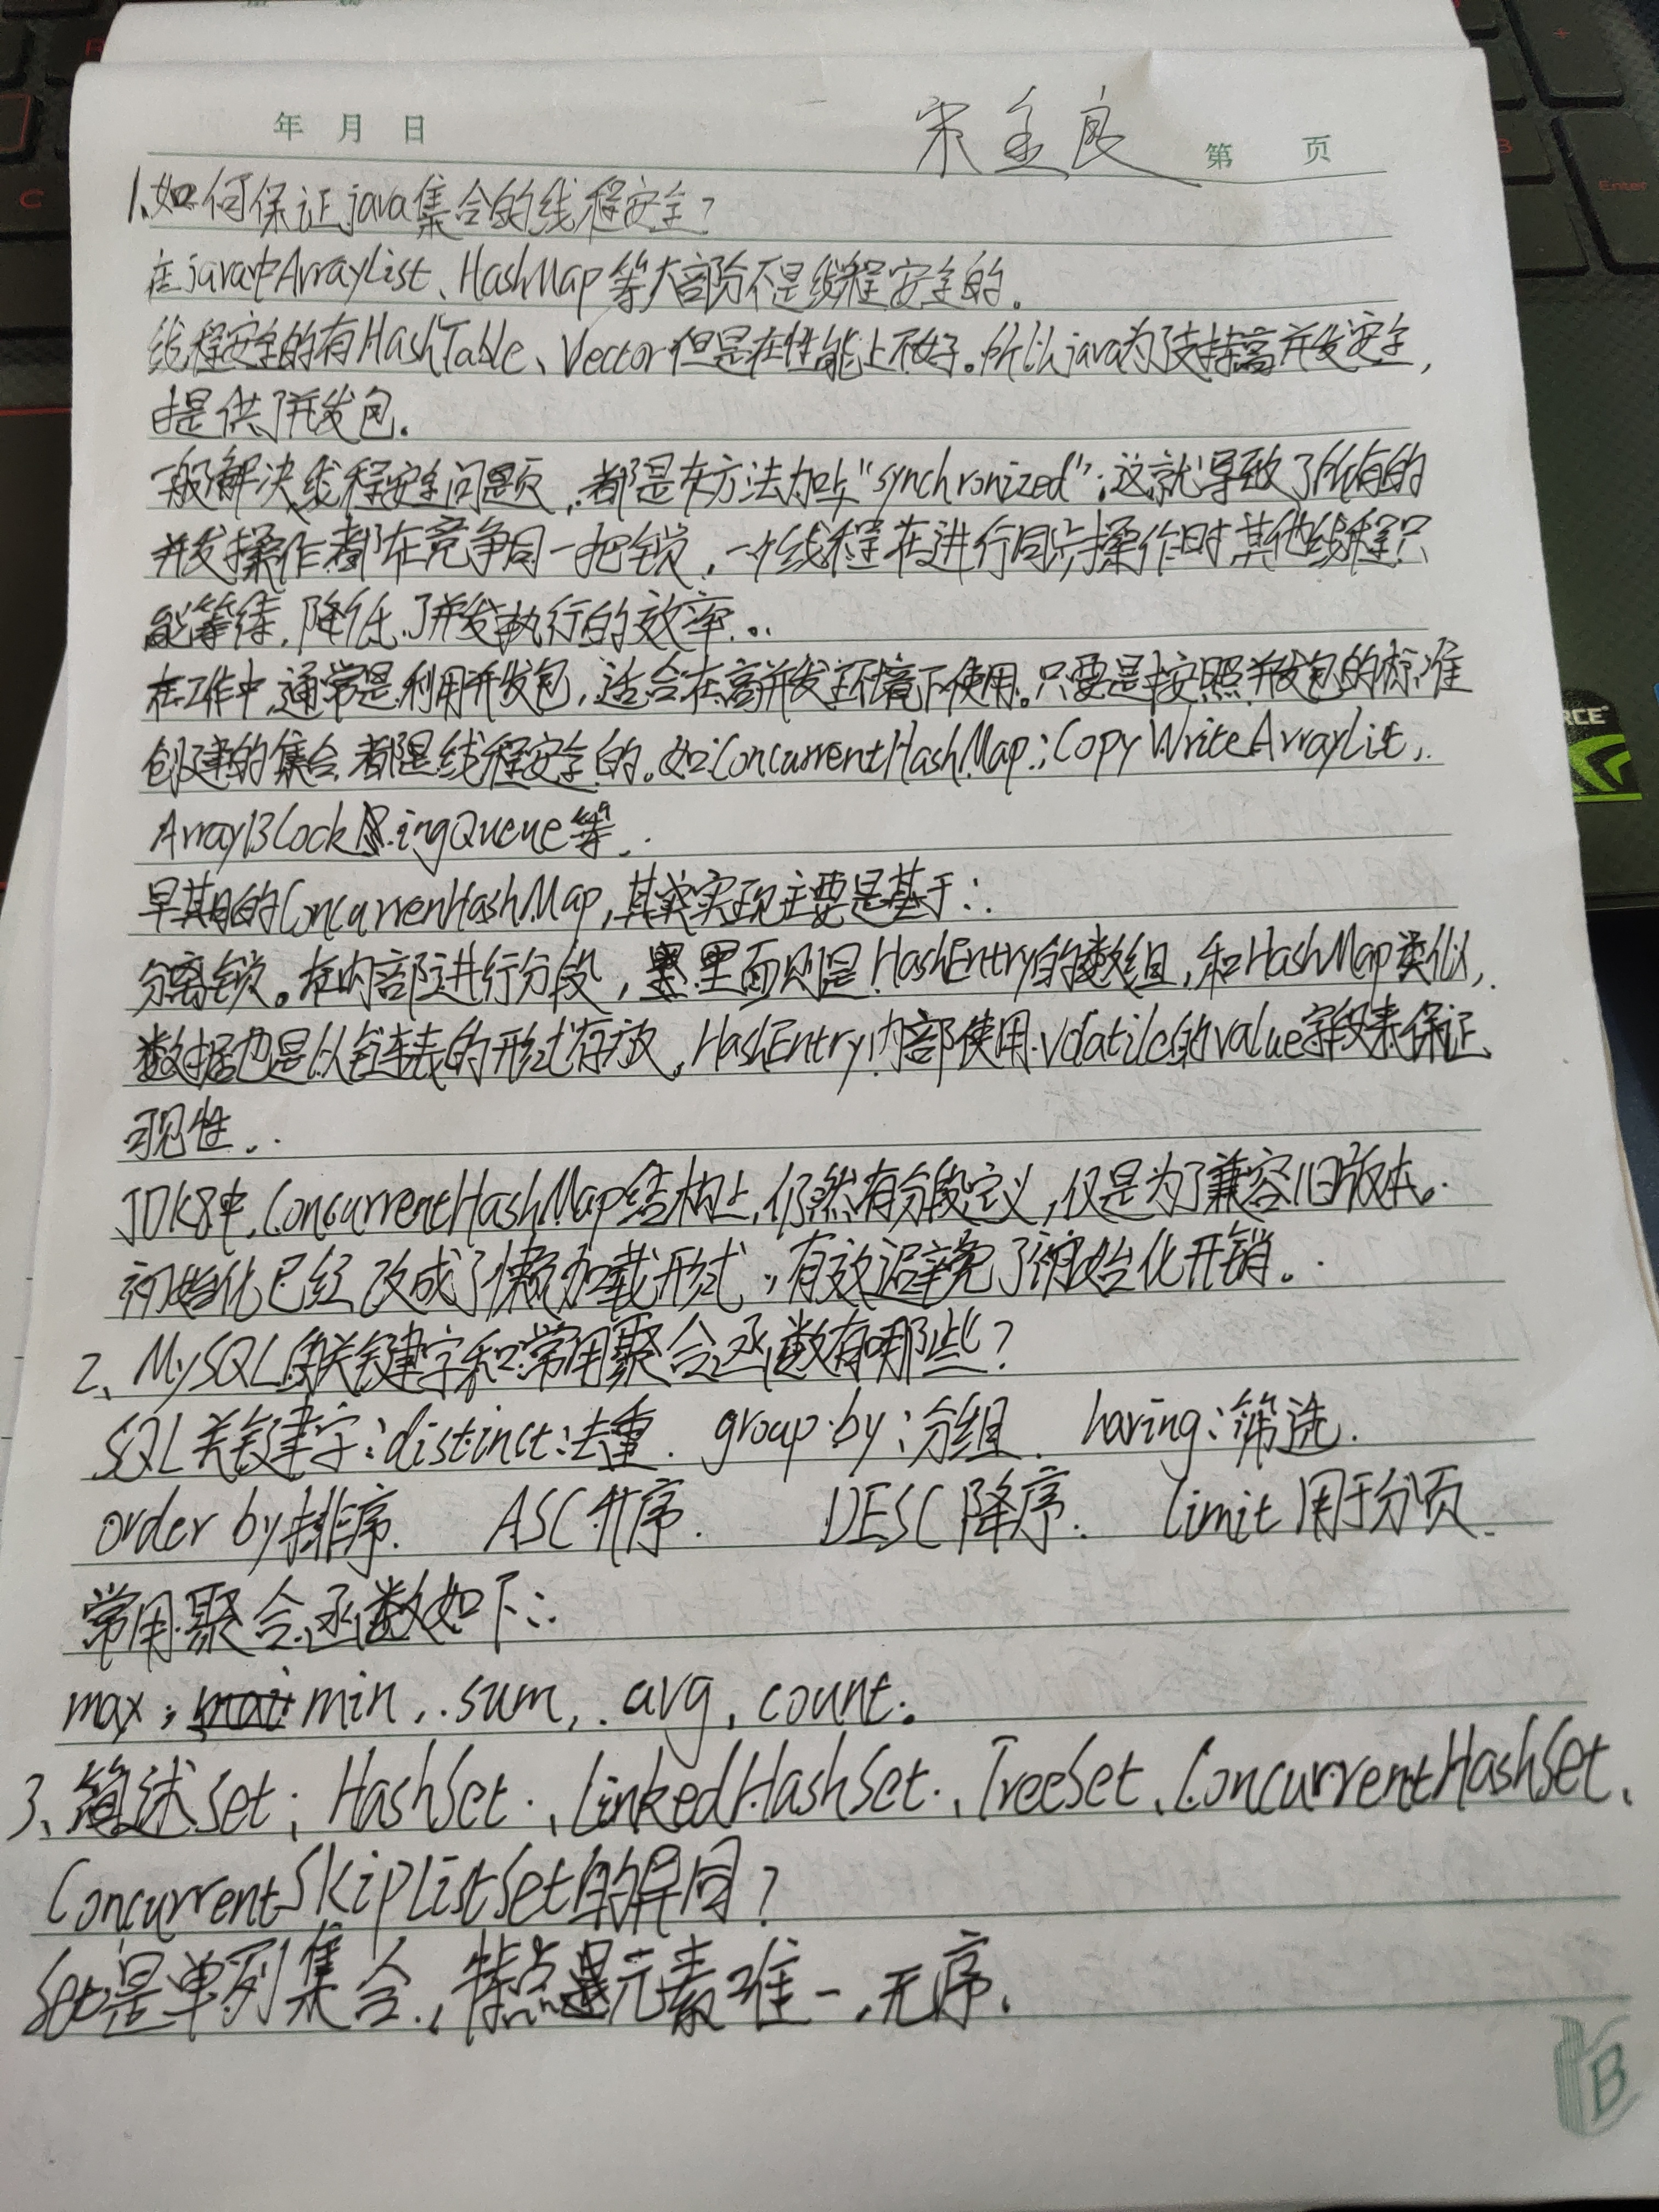 年 月 日
宋金良 第 页
1、如何保证java集合的线程安全?
在java中ArrayList、HashMap等大部份不是线程安全的。
线程安全的有HashTable、Vector但是在性能上不好。所以java为了支持高并发安全,
提供了并发包.
一般解决线程安全问题,都是在方法加上"synchronized",这就导致了所有的
并发操作都在竞争同一把锁,一个线程在进行同步操作时,其他线程只
能等待,降低了并发执行的效率.
在工作中,通常是利用并发包,适合在高并发环境下使用。只要是按照并发包的标准
创建的集合,都是线程安全的。如:ConcurrentHashMap、CopyWriteArrayList、
ArrayBlockingQueue等.
早期的ConcurrenHashMap,其实现主要是基于:
分离锁。在内部进行分段,里面则是HashEntry的数组,和HashMap类似,
数据也是以链表的形式存放,HashEntry内部使用volatile的value字段来保证
可见性.
JDK8中,ConcurrentHashMap结构上,仍然有分段定义,仅是为了兼容旧版本。
初始化已经改成了懒加载形式,有效避免了初始化开销。
2、MySQL的关键字和常用聚合函数有哪些?
SQL关键字:distinct:去重. group by:分组. having:筛选.
order by排序. ASC升序. DESC降序. limit用于分页.
常用聚合函数如下:
max, min, sum, avg, count.
3、简述Set、HashSet、LinkedHashSet、TreeSet、ConcurrentHashSet、
ConcurrentSkipListSet的异同?
Set是单列集合,特点是元素唯一,无序.
B